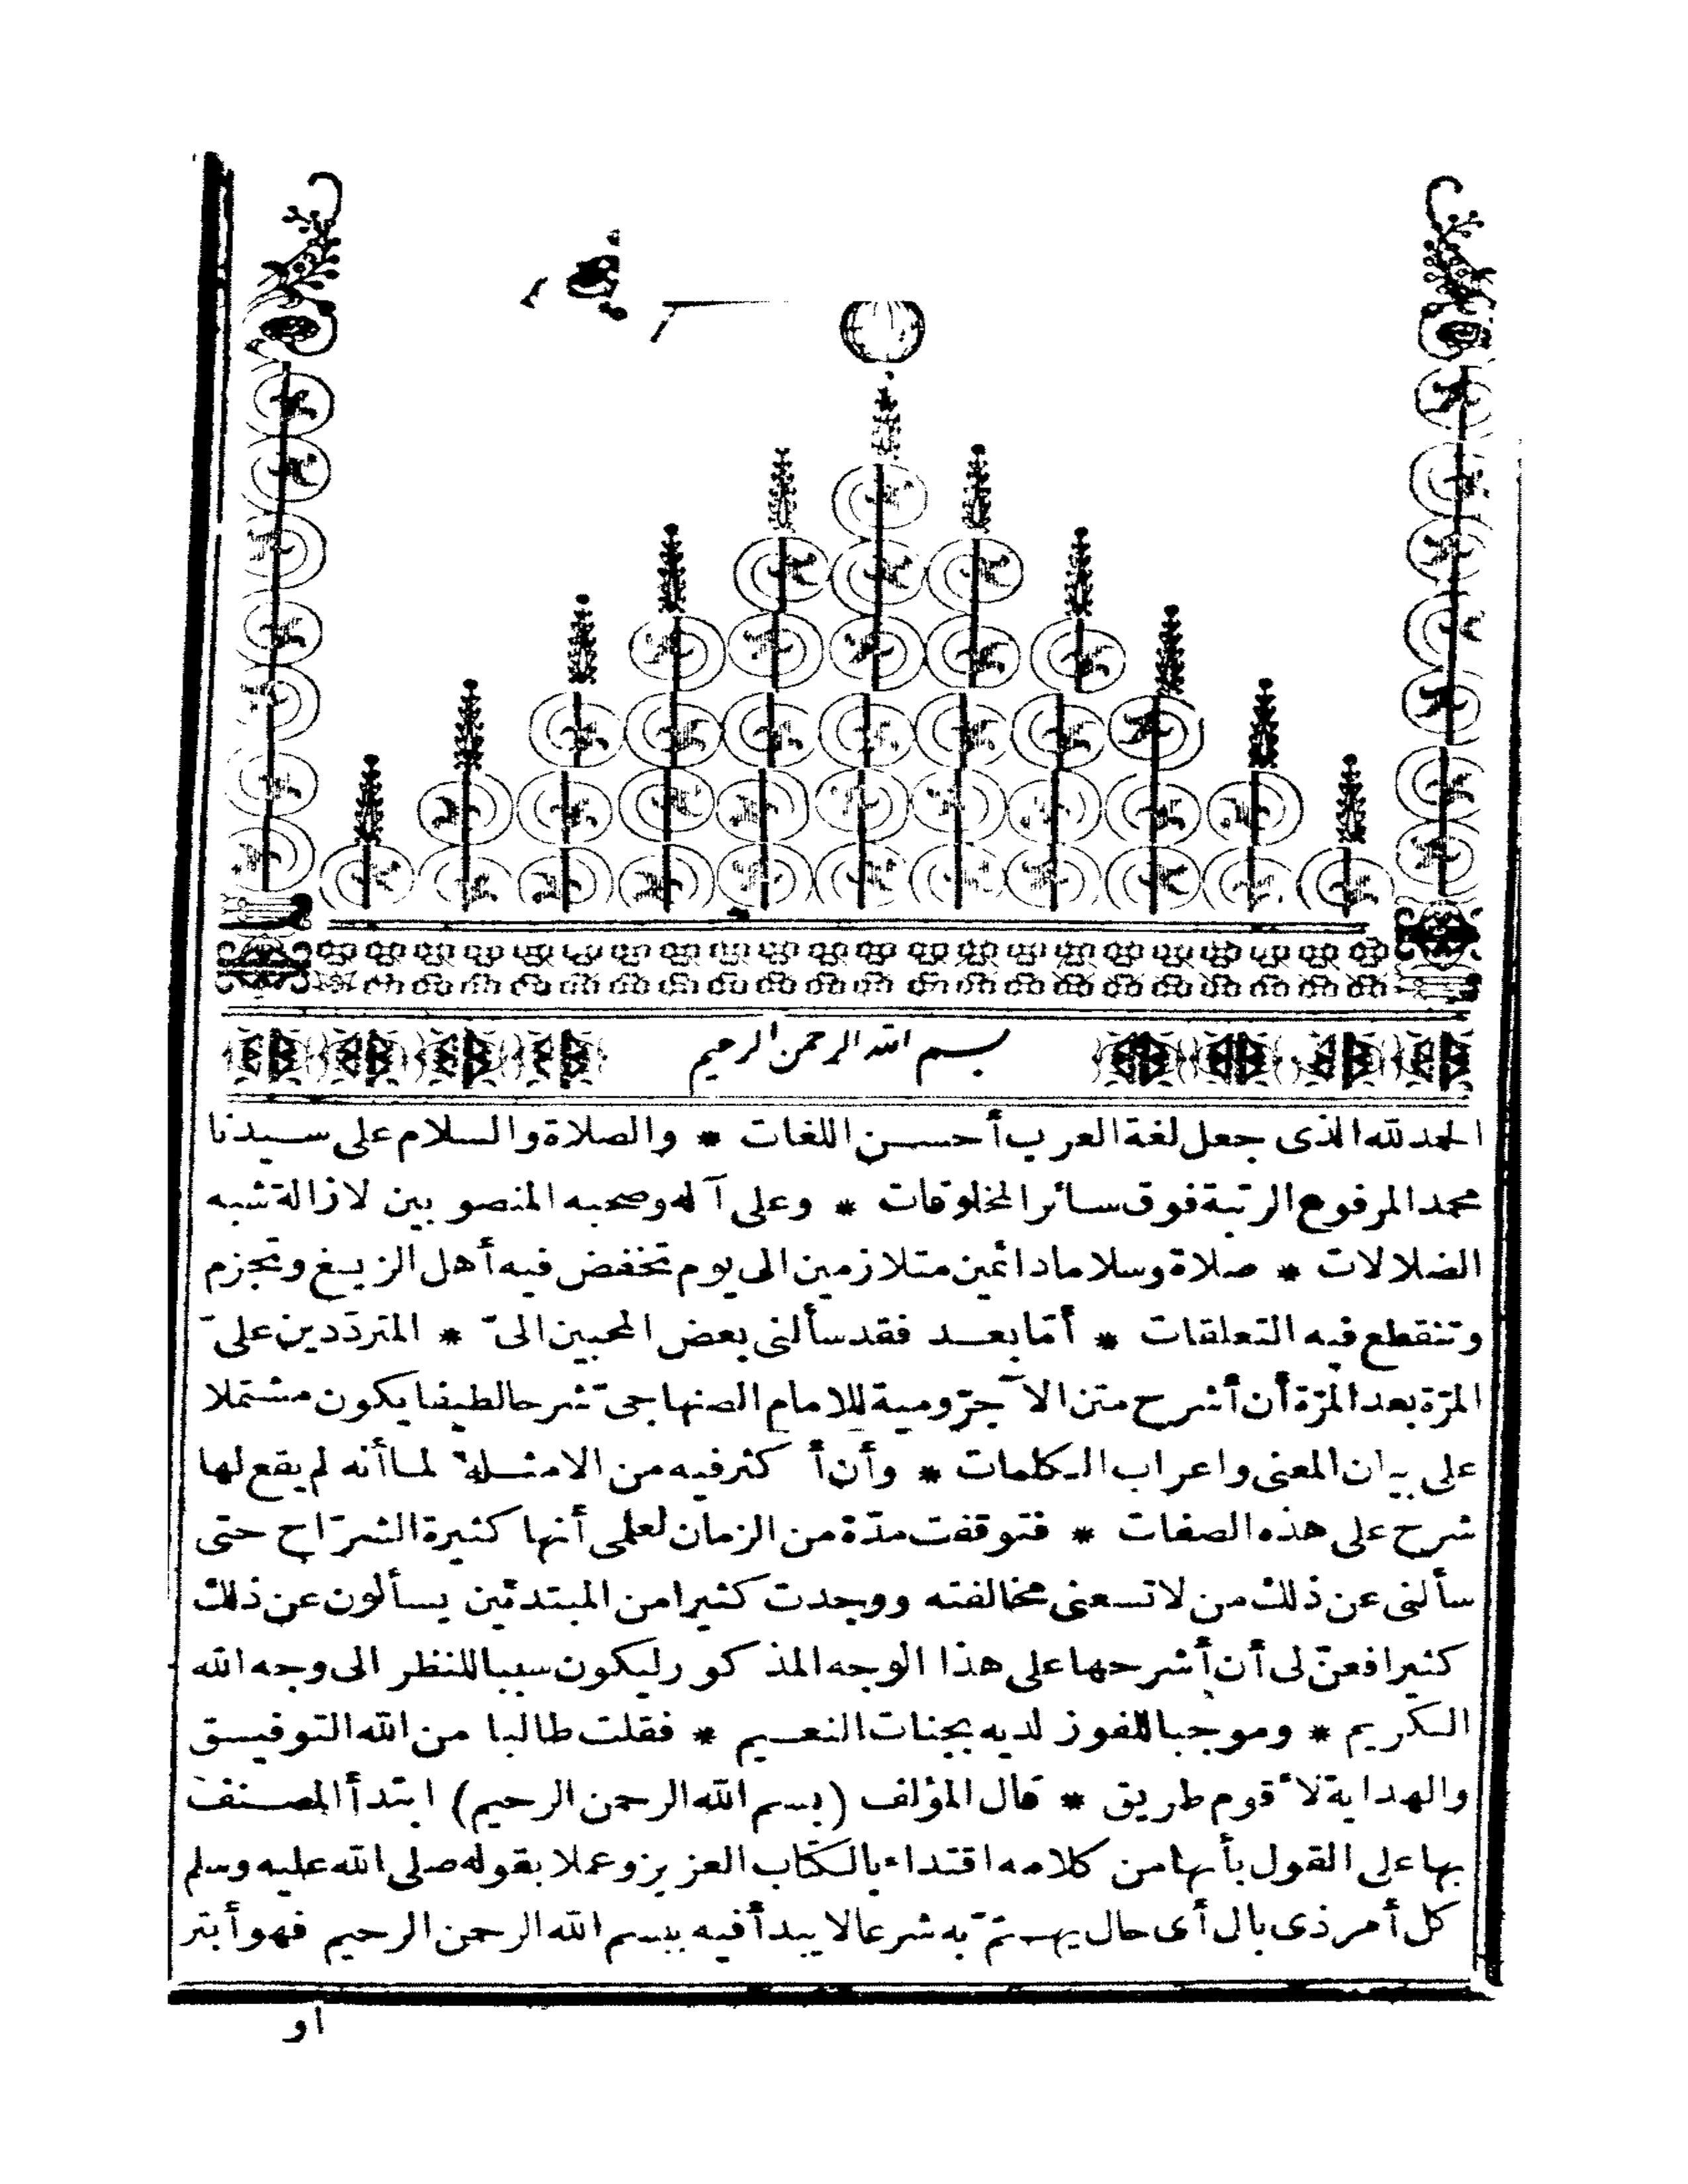 بسم الله الرحمن الرحيم
الحمد لله الذى جعل لغة العرب أحسن اللغات * والصلاة والسلام على سيدنا
محمد المرفوع الرتبة فوق سائر المخلوقات * وعلى آله وصحبه المنصوبين لازالة شبه
الضلالات * صلاة وسلاما دائمين متلازمين الى يوم تخفض فيه أهل الزيغ وتجزم
وتنقطع فيه التعلقات * أمّا بعد فقد سألنى بعض المحبين الىّ * المتردّدين علىّ
المرّة بعد المرّة أن أشرح متن الآجرّومية للامام الصنهاجىّ شرحا لطيفا يكون مشتملا
على بيان المعنى واعراب الكلمات * وأن أكثر فيه من الامثلة لما أنه لم يقع لها
شرح على هذه الصفات * فتوقفت مدّة من الزمان لعلمى أنها كثيرة الشرّاح حتى
سألنى عن ذلك من لا تسعنى مخالفته ووجدت كثيرا من المبتدئين يسألون عن ذلك
كثيرا فعنّ لى أن أشرحها على هذا الوجه المذكور ليكون سببا للنظر الى وجه الله
الكريم * وموجبا للفوز لديه بجنات النعيم * فقلت طالبا من الله التوفيق
والهداية لأقوم طريق * قال المؤلف (بسم الله الرحمن الرحيم) ابتدأ المصنف
بها على القول بأنها من كلامه اقتداء بالكتاب العزيز وعملا بقوله صلى الله عليه وسلم
كل أمر ذى بال أى حال يهتمّ به شرعا لا يبدأ فيه ببسم الله الرحمن الرحيم فهو أبتر
او